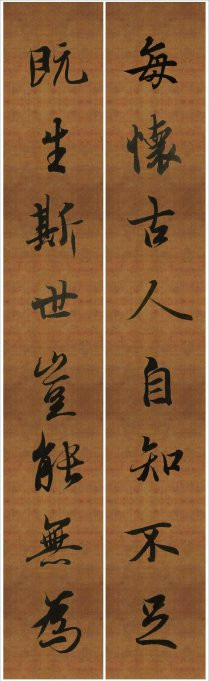 每懷古人自知不足
既生斯世豈能無為